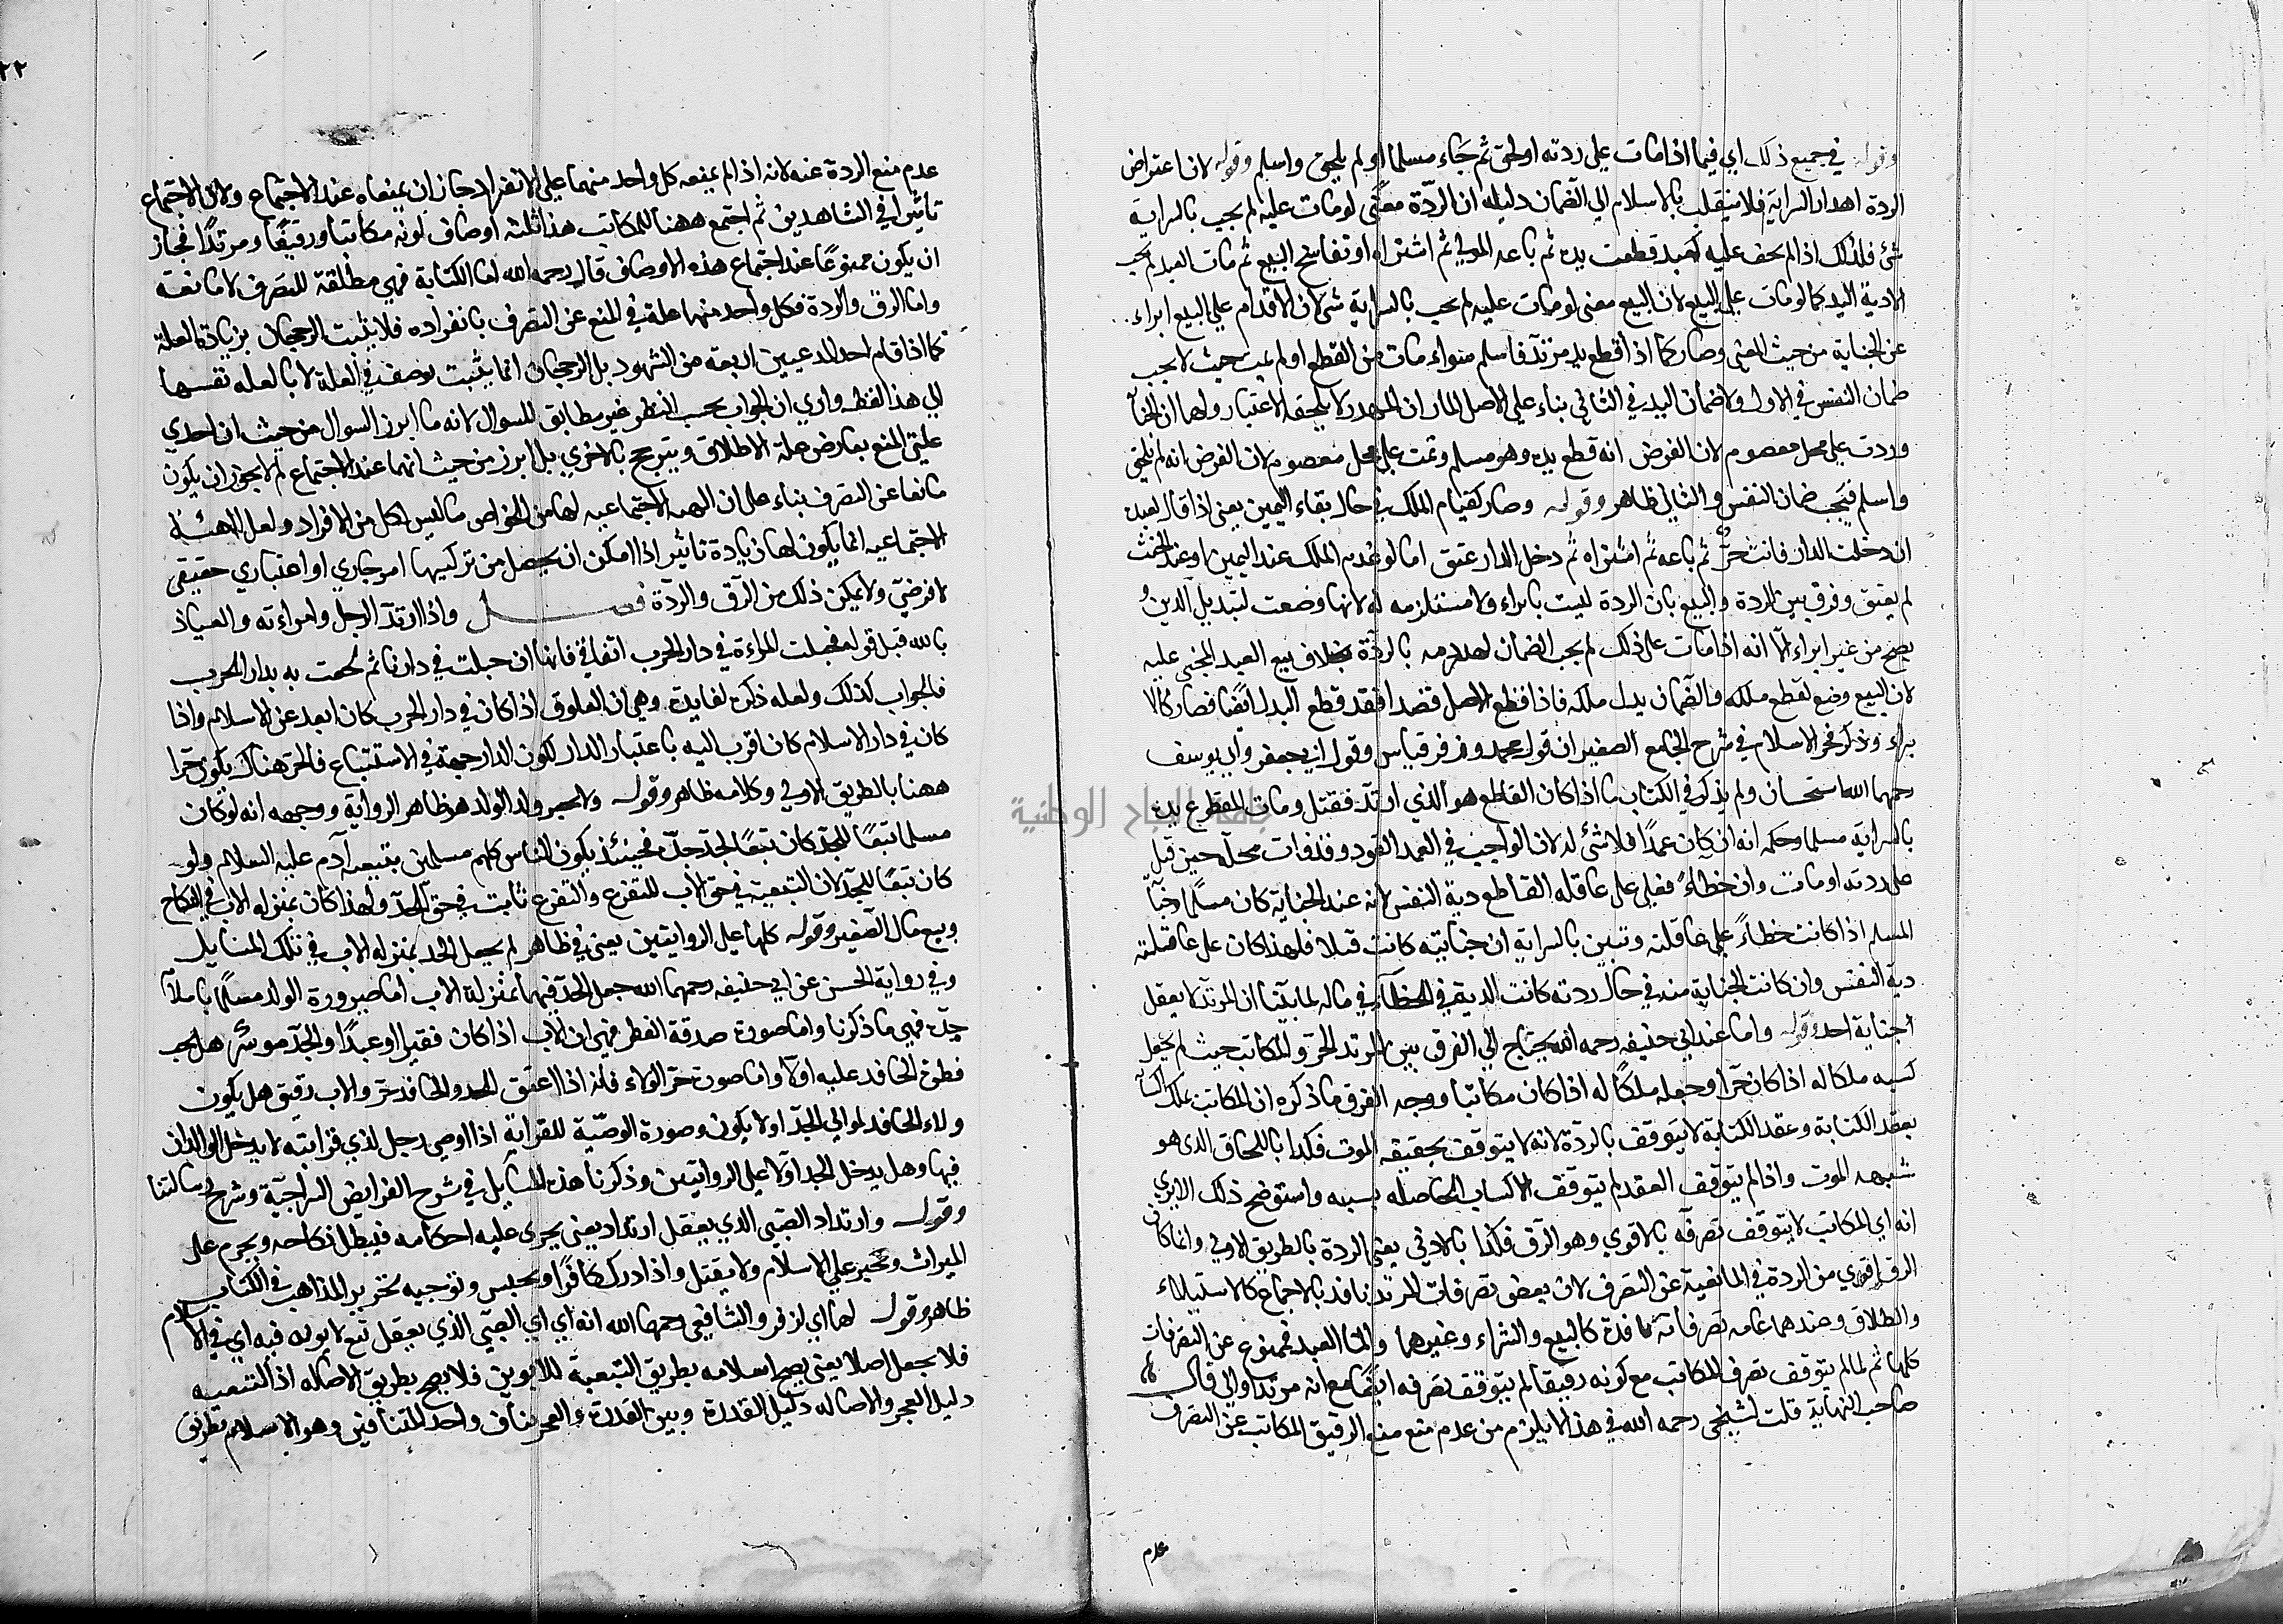 وقوله في جميع ذلك اي فيما اذا مات علي ردته او لحق ثم جاء مسلما او لم يلحق واسلم وقوله لان اعتراض
الردة اهدار السراية فلا ينقلب بالاسلام الي الضمان دليله ان الردة معنًى لو مات عليه لم يجب بالسراية
شئ فلذلك اذا لم يمت عليه كعبد قطعت يده ثم باعه المولي ثم اشتراه او تفاسخ البيع ثم مات العبد لم يجب
الا دية اليد كما لو مات علي البيع لان البيع معنى لو مات عليه لم يجب بالسراية شئ لان الاقدام علي البيع ابراء
عن الجناية من حيث المعنى وصار كما اذا قطع يد مرتد فاسلم سواء مات من القطع او لم يمت حيث لا يجب
ضمان النفس في الاول ولا ضمان اليد في الثاني بناء علي الاصل المار ان المهدر لا يلحقه الاعتبار ولهما ان الجنا
وردت علي محل معصوم لان الفرض انه قطع يده وهو مسلم وتمت علي محل معصوم لان الفرض انه لم يلحق
واسلم فيجب ضمان النفس والثاني ظاهر وقوله وصار كقيام الملك في حال بقاء اليمين يعنى اذا قال لعبده
ان دخلت الدار فانت حر ثم باعه ثم اشتراه ثم دخل الدار عتق اما لو عدم الملك عند اليمين او عند الحنث
لم يعتق وفرق بين الردة والبيع بان الردة ليست بابراء ولا مستلزمه له لانها وضعت لتبديل الدين و
يصح من غير ابراء الا انه اذا مات على ذلك لم يجب الضمان لهدر دمه بالردة بخلاف بيع العبد المجني عليه
لان البيع وضع لقطع ملكه والضمان بدل ملكه فاذا قطع الاصل قصدا فقد قطع البدل ايضا فصار كالا
براء وذكر فخر الاسلام في شرح الجامع الصغير ان قول محمد وزفر قياس وقول ابي جعفر وابي يوسف
رحمهما الله استحسان ولم يذكر في الكتاب ما اذا كان القاطع هو الذي ارتد فقتل ومات المقطوع يده
بالسراية مسلما وحكمه انه ان كان عمدًا فلا شئ له لان الواجب في العمد القود وقد فات محله حين قتل
على ردته او مات وان خطاءً فعلى على عاقلة القاطع دية النفس لانه عند الجناية كان مسلمًا وجناية
المسلم اذا كانت خطاءً علي عاقلته وتبين بالسراية ان جنايته كانت قتلا فلهذا كان على عاقلته
دية النفس وان كانت الجناية منه في حال ردته كانت الدية في الخطاء في ماله لما بينا ان المرتد لا يعقل
جناية احد وقوله واما عند ابي حنيفة رحمه الله يحتاج الي الفرق بين المرتد الحر والمكاتب حيث لم يجعل
كسبه ملكا له اذا كان حرا وجعله ملكًا له اذا كان مكاتبا ووجه الفرق ما ذكره ان المكاتب يملك اكسابه
بعقد الكتابة وعقد الكتابة لا يتوقف بالردة لانه لا يتوقف بحقيقة الموت فكذا باللحاق الذى هو
شبهه الموت واذا لم يتوقف العقد لم يتوقف الاكساب الحاصله بسببه واستوضح ذلك الا يري
انه اي المكاتب لا يتوقف تصرفه بالاقوي وهو الرق فكذا بالادنى يعنى الردة بالطريق الاولي وانما كان
الرق اقوي من الردة في المانعية عن التصرف لان بعض تصرفات المرتد نافذ بالاجماع كالاستيلاء
والطلاق وعندهما عامه تصرفاته نافدة كالبيع والشراء وغيرهما واما العبد فممنوع عن التصرفات
كلها ثم لما لم يتوقف تصرف المكاتب مع كونه رقيقا لم يتوقف تصرفه ايضًا مع انه مرتد اولى قال
صاحب النهاية قلت لشيخى رحمه الله في هذا لا يلزم من عدم منع منع الرقيق المكاتب عن التصرف
عدم
٢٢
عدم منع الردة عنه لانه اذا لم يمنعه كل واحد منهما علي الانفراد جاز ان يمنعاه عند الاجتماع ولان الاجتماع
تاثيرا في الشاهدين ثم اجتمع ههنا للمكاتب هذا ثلثه اوصاف لونه مكاتبا ورقيقًا ومرتدًا فجاز
ان يكون ممنوعًا عند اجتماع هذه الاوصاف قال رحمه الله اما الكتابة فهي مطلقة للتصرف لا مانعة
واما الرق والردة فكل واحد منهما علة في المنع عن التصرف بانفراده فلا يثبت الرجحان بزيادة العلة
كما اذا قام احد المدعيين اربعة من الشهود بل الرجحان انما يثبت بوصف في العلة لا بالعله نفسها
الي هذا لفظه واري ان الجواب بحسب النظر غير مطابق للسوال لانه ما ابرز السوال من حيث ان احدي
علتي المنع يعارض علة الاطلاق ويترجح بالاخري بل ابرز من حيث انهما عند الاجتماع لم لا يجوز ان يكون
مانعا عن التصرف بناء على ان الهيه الاجتماعيه لها من الخواص ما ليس لكل من الافراد ولعل الهيئة
الاجتماعيه انما يكون لها زيادة تاثير اذا امكن ان يحصل من تركيبها امر جاري او اعتباري حقيقى
لا فرضي ولا يمكن ذلك من الرق والردة فصل واذا ارتد الرجل وامراءته والعياذ
بالله قبل قوله فحبلت المراءة في دار الحرب اتفاقي فانها ان حبلت في دارنا ثم لحقت به بدار الحرب
فالجواب كذلك ولعله ذكره لفايدة وهي ان العلوق اذا كان في دار الحرب كان ابعد عن الاسلام واذا
كان في دار الاسلام كان اقرب اليه باعتبار الدار لكون الدار جهة في الاستتباع فالحر هناك يكون حرا
ههنا بالطريق الاولي وكلامه ظاهر وقوله ولا يجبر ولد الولد هو ظاهر الرواية ووجهه انه لو كان
مسلما تبعًا للجد كان تبعًا لجد جده فحينئذ يكون الناس كلهم مسلمين بتبعية آدم عليه السلام ولو
كان تبعًا للجد لان التبعية في حق الاب للتفرع والتفرع ثابت في حق الجد ولهذا كان بمنزله الاب في النكاح
وبيع مال الصغير وقوله كلها علي الروايتين يعنى في ظاهر لم يجعل الجد بمنزله الاب في تلك المسايل
وفي رواية الحسن عن ابي حنيفه رحمهما الله جعل الجد فيها بمنزلة الاب اما صيرورة الولد مسلمًا باسلام
جده فهي ما ذكرنا واما صورة صدقة الفطر فهي ان الاب اذا كان فقيرا او عبدًا والجد موسر هل يجب
فطرة الحافد عليه اولا واما صورة جر الولاء فانه اذا اعتق الجد والحافد حر والاب رقيق هل يكون
ولاء الحافد لموالي الجد او لا يكون وصورة الوصية للقرابة اذا اوصي رجل لذي قرابته لا يدخل الوالدان
فيها وهل يدخل الجد اولا علي الروايتين وذكرنا هذه المسايل في شرح الفرايض السراجية وشرح رسالتنا
وقوله وارتداد الصبي الذي يعقل ارتداد يعنى يجرى عليه احكامه فيبطل نكاحه ويحرم على
الميراث ويجبر علي الاسلام ولا يقتل واذا ادرك كافرًا ويحبس وتوجيه تحرير المذاهب في الكتاب
ظاهر وقوله لهما اي لزفر والشافعي رحمهما الله انه اي اي الصبي الذي يعقل تبع لابويه فيه اي في الاسلام
فلا يجعل اصلا يعنى يصح اسلامه بطريق التبعية للابوين فلا يصح بطريق الاصاله اذ التبعيه
دليل العجز والاصاله دليل القدرة وبين القدرة والعجز تناف واحد المتنافيين وهو الاسلام بطريق
جامعة النجاح الوطنية